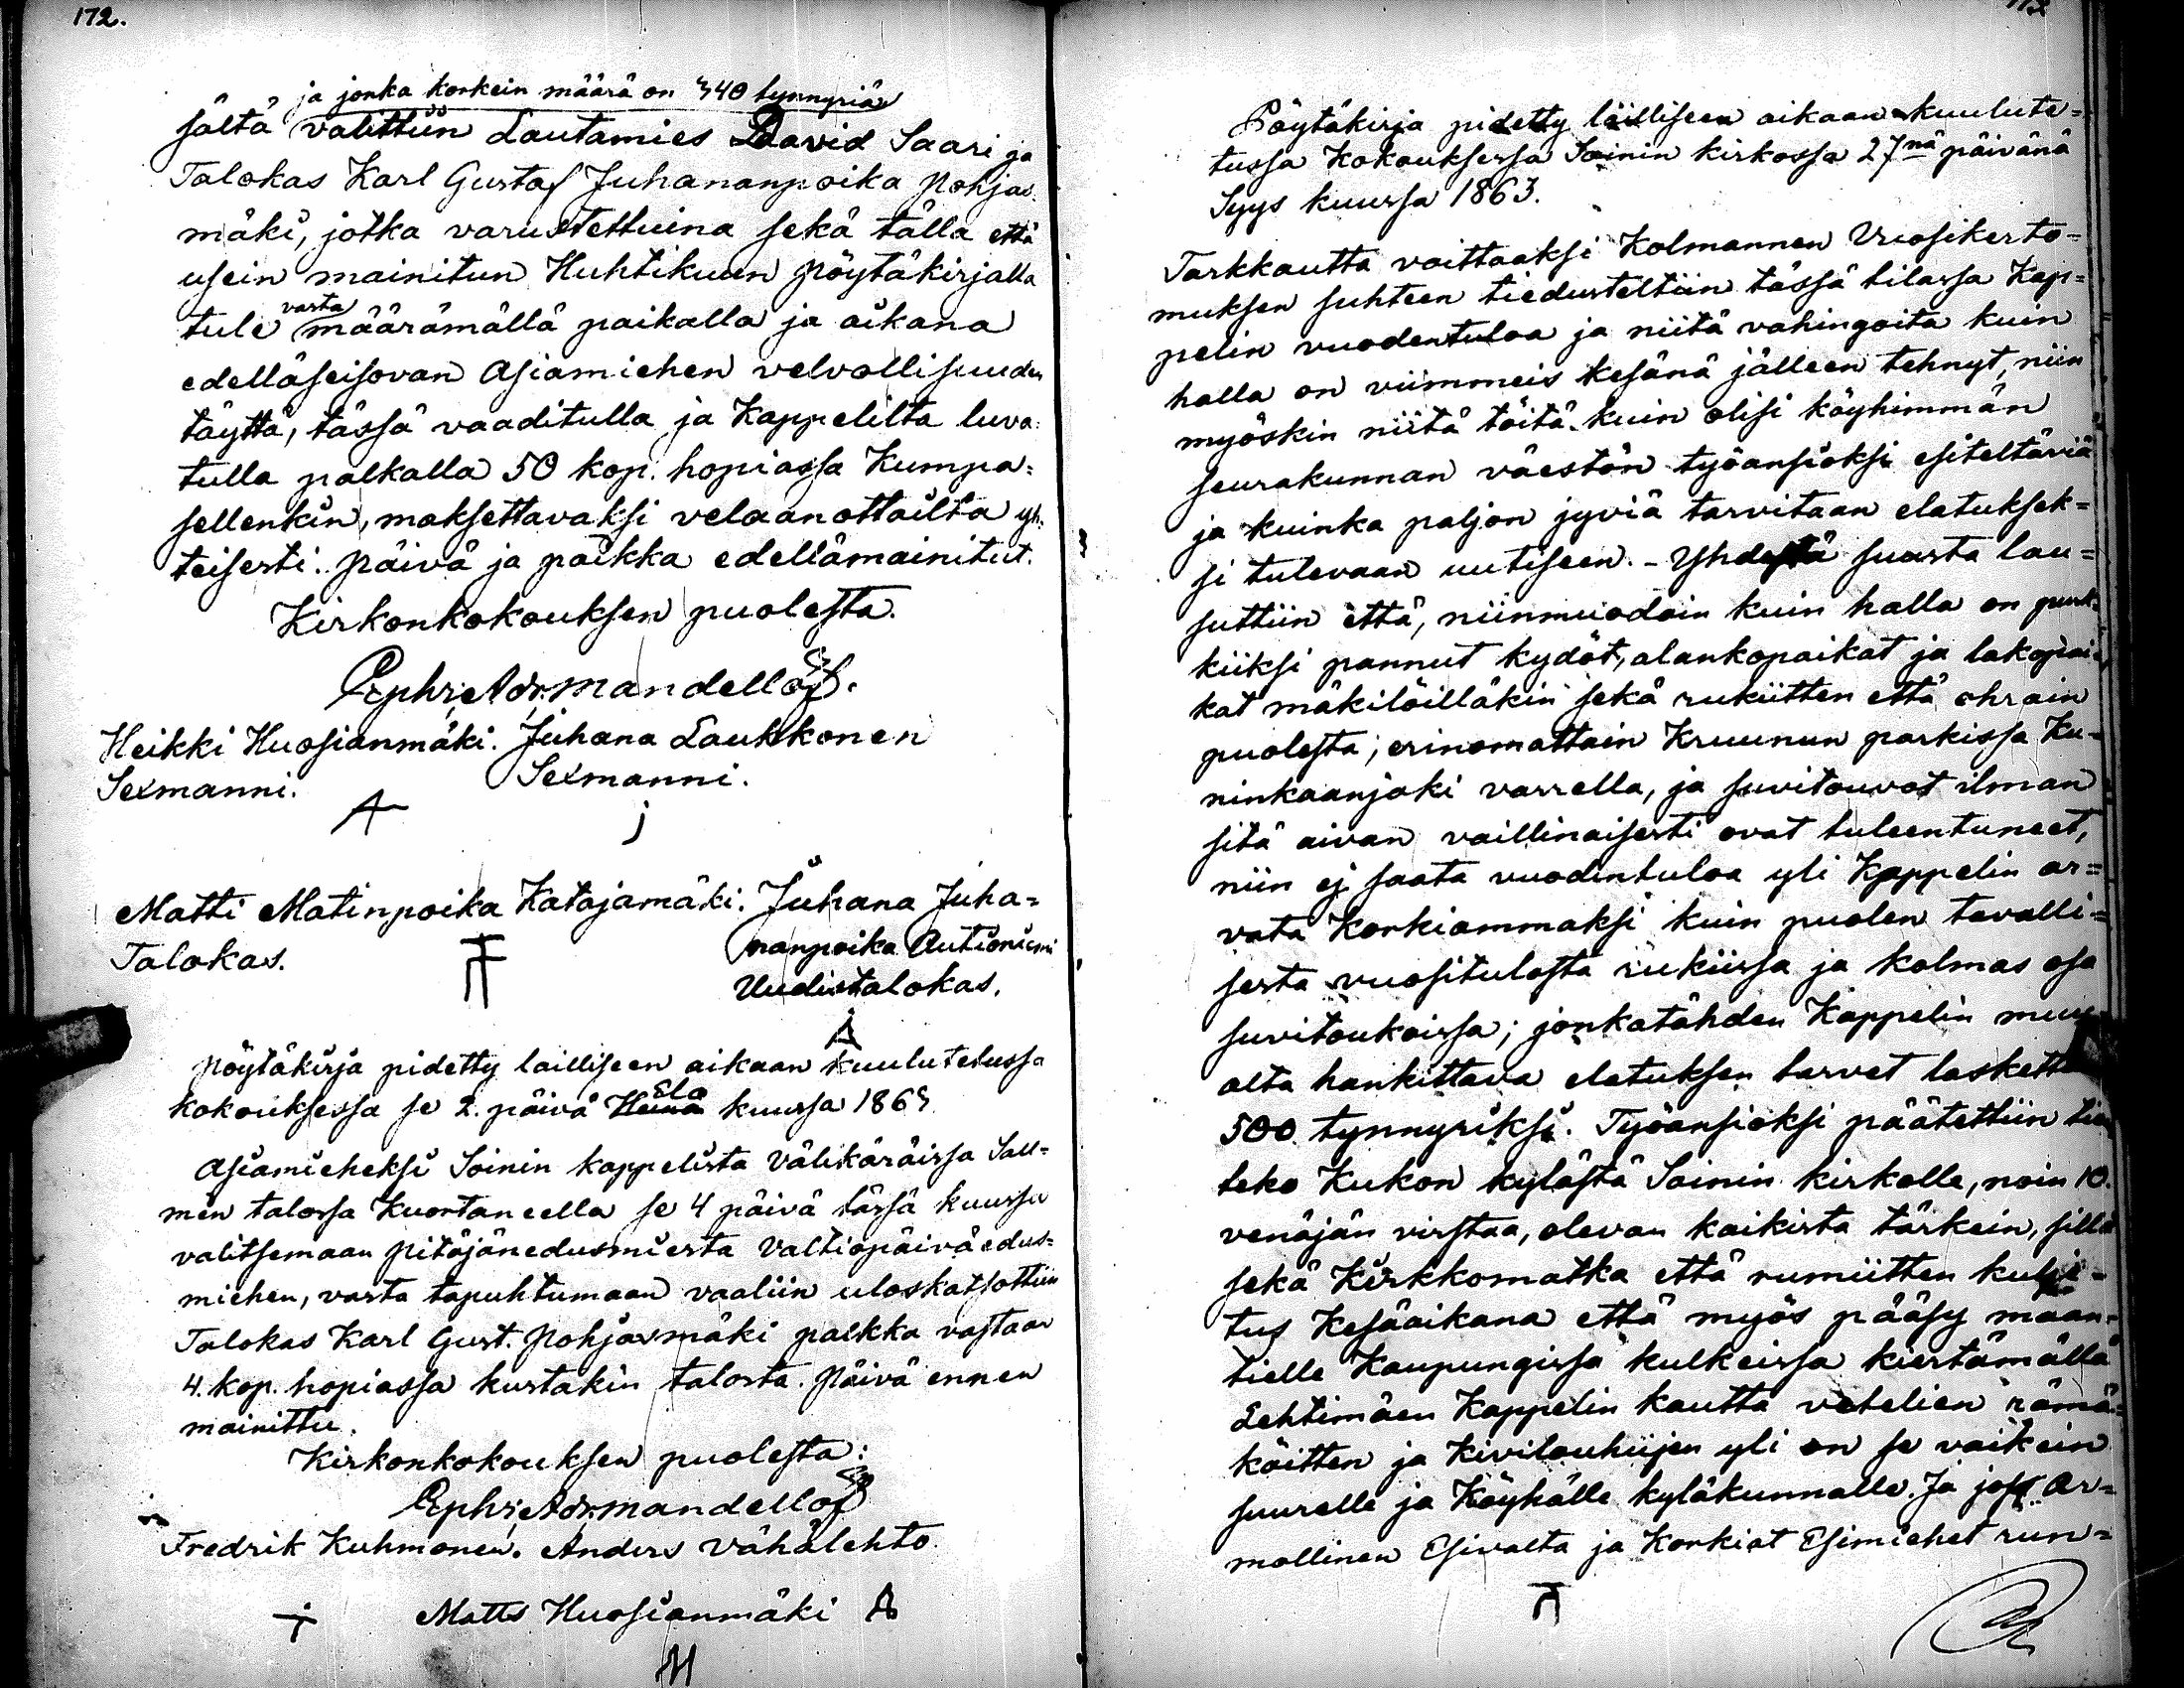 172.
ja jonka korkein määrä on 340 tynnyriä
sältä valittiin Lautamies David Saari ja
Talokas Karl Gustaf Juhananpoika Pohjas
mäki, jotka varustettuina sekä tällä että
usein mainitun Huhtikuun pöytäkirjalla
vasta
tule määrämällä paikalla ja aikana
edelläseisovan Asiamiehen velvollisuuden
täyttä, tässä vaaditulla ja Kappelilta luva:
tulla palkalla 50 kop. hopiassa Kumpa=
sellenkin, maksettavaksi velaanottailta yh:
teisesti. Päivä ja paikka edellämainitut.
Kirkonkokouksen puolesta.
Heikki Huosianmäki. Juhana Laukkonen
Sexmanni. Sexmanni.
Matti Matinpoika Katajamäki. Juhana Juha=
Talokas. nanpoika Autioniemi
Uudistalokas.
Pöytäkirja pidetty lailliseen aikaan kuulutetussa
Elo
kokouksessa se 2. päivä Heinä kuussa 1863
Asiamieheksi Soinin kappelista Välikäräissä Sal=
men talossa Kuortaneella se 4 päivä tässä kuussa
valitsemaan pitäjänedusmiestä Valtiopäiväedus=
miehen, vasta tapahtumaan vaaliin uloskatsottiin
Talokas Karl Gust. Pohjasmäki palkka vastaan
4. kop. hopiassa kustakin talosta. Päivä ennen
mainittu.
Kirkonkokouksen puolesta:
Fredrik Kuhmonen. Anders Vähälehto.
Matts Huosianmäki
Pöytäkirja pidetty lailliseen aikaan kuulute=
tussa Kokouksessa Soinin kirkossa 27nä päivänä
Syys kuussa 1863.
Tarkkautta voittaaksi Kolmannen Vuosikerto=
muksen suhteen tiedusteltiin tässä tilassa Kap=
pelin vuodentuloa ja niitä vahingoita kuin
halla on viimmeis kesänä jälleen tehnyt, niin
myöskin niitä töitä kuin olisi köyhimmän
seurakunnan väestön työansioksi esiteltäviä
ja kuinka paljon jyviä tarvitaan elatuksek=
si tulevaan uutiseen. - Yhdestä suusta lau=
suttiin että, niinmuodoin kuin halla on puuk=
kiiksi pannut kydöt, alankopaikat ja lakopai=
kat mäkilöilläkin sekä rukiitten että ohrain
puolesta; erinomattain Kruunun parkissa Ku=
ninkaanjoki varrella, ja suvitouvot ilman
sitä aivan vaillinaisesti ovat tuleentuneet,
niin ej saata vuodentuloa yli Kappelin ar=
vata Korkiammaksi kuin puolen tavalli=
sesta vuositulosta rukiissa ja kolmas osa
suvitoukoissa; jonkatähden Kappelin muu
alta hankittava elatuksen tarvet laskettiin
500 tynnyriksi. Työansioksi päätettiin tien
teko Kukon kylästä Soinin kirkolle, noin 10.
venäjän virstaa, olevan kaikista tärkein, sillä
sekä Kirkkomatka että rumiitten kulje=
tus Kesäaikana että myös pääsy maan=
tielle Kaupungissa kulkeissa kiertämällä
Lehtimäen Kappelin kautta vetelien rämä=
köitten ja Kivilouhujen yli on se vaikein
suurelle ja Köyhälle kyläkunnalle. Ja jos Ar=
mollinen Esivalta ja Korkiat Esimiehet run=